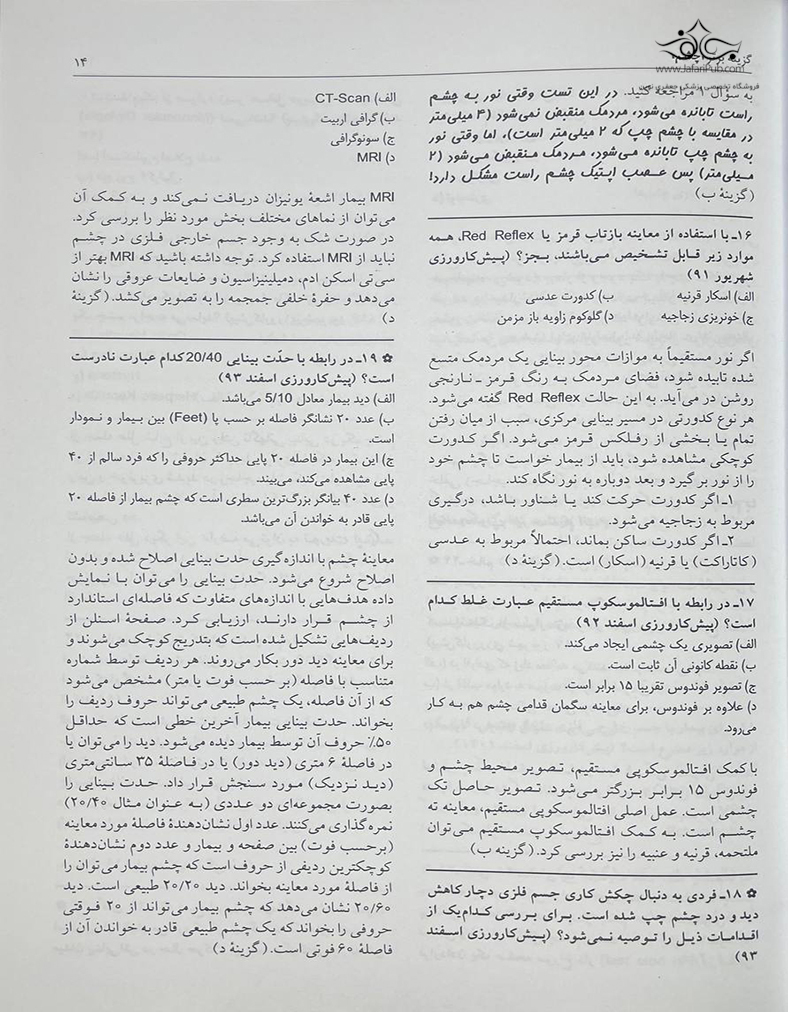 گزینه برتر چشم
۱۴
www.JafariPub.com
فروشگاه تخصصی پزشکی جعفری نوین
به سوال ۹ مراجعه کنید. در این تست وقتی نور به چشم
راست تابانده می‌شود، مردمک منقبض نمی‌شود (۴ میلی‌متر
در مقایسه با چشم چپ که ۲ میلی‌متر است)، اما وقتی نور
به چشم چپ تابانده می‌شود، مردمک منقبض می‌شود (۲
میلی‌متر) پس عصب اپتیک چشم راست مشکل دارد!
(گزینهٔ ب)
۱۶ـ با استفاده از معاینه بازتاب قرمز یا Red Reflex، همه
موارد زیر قابل تشخیص می‌باشند، بجز؟ (پیش‌کارورزی
شهریور ۹۱)
الف) اسکار قرنیه ب) کدورت عدسی
ج) خونریزی زجاجیه د) گلوکوم زاویه باز مزمن
اگر نور مستقیماً به موازات محور بینایی یک مردمک متسع
شده تابیده شود، فضای مردمک به رنگ قرمز ـ نارنجی
روشن در می‌آید. به این حالت Red Reflex گفته می‌شود.
هر نوع کدورتی در مسیر بینایی مرکزی، سبب از میان رفتن
تمام یا بخشی از رفلکس قرمز می‌شود. اگر کدورت
کوچکی مشاهده شود، باید از بیمار خواست تا چشم خود
را از نور بر گیرد و بعد دوباره به نور نگاه کند.
۱ـ اگر کدورت حرکت کند یا شناور باشد، درگیری
مربوط به زجاجیه می‌شود.
۲ـ اگر کدورت ساکن بماند، احتمالاً مربوط به عدسی
(کاتاراکت) یا قرنیه (اسکار) است. (گزینهٔ د)
۱۷ـ در رابطه با افتالموسکوپ مستقیم عبارت غلط کدام
است؟ (پیش‌کارورزی اسفند ۹۲)
الف) تصویری یک چشمی ایجاد می‌کند.
ب) نقطه کانونی آن ثابت است.
ج) تصویر فوندوس تقریبا ۱۵ برابر است.
د) علاوه بر فوندوس، برای معاینه سگمان قدامی چشم هم به کار
می‌رود.
با کمک افتالموسکوپی مستقیم، تصویر محیط چشم و
فوندوس ۱۵ برابر بزرگتر می‌شود. تصویر حاصل تک
چشمی است. عمل اصلی افتالموسکوپی مستقیم، معاینه ته
چشم است. به کمک افتالموسکوپ مستقیم می‌توان
ملتحمه، قرنیه و عنبیه را نیز بررسی کرد. (گزینهٔ ب)
✿ ۱۸ـ فردی به دنبال چکش کاری جسم فلزی دچار کاهش
دید و درد چشم چپ شده است. برای بررسی کدام‌یک از
اقدامات ذیل را توصیه نمی‌شود؟ (پیش‌کارورزی اسفند
۹۳)
الف) CT-Scan
ب) گرافی اربیت
ج) سونوگرافی
د) MRI
MRI بیمار اشعهٔ یونیزان دریافت نمی‌کند و به کمک آن
می‌توان از نماهای مختلف بخش مورد نظر را بررسی کرد.
در صورت شک به وجود جسم خارجی فلزی در چشم
نباید از MRI استفاده کرد. توجه داشته باشید که MRI بهتر از
سی‌تی اسکن ادم، دمیلینیزاسیون و ضایعات عروقی را نشان
می‌دهد و حفرهٔ خلفی جمجمه را به تصویر می‌کشد. (گزینهٔ
د)
✿ ۱۹ـ در رابطه با حدّت بینایی 20/40 کدام عبارت نادرست
است؟ (پیش‌کارورزی اسفند ۹۳)
الف) دید بیمار معادل 5/10 می‌باشد.
ب) عدد ۲۰ نشانگر فاصله بر حسب پا (Feet) بین بیمار و نمودار
است.
ج) این بیمار در فاصله ۲۰ پایی حداکثر حروفی را که فرد سالم از ۴۰
پایی مشاهده می‌کند، می‌بیند.
د) عدد ۴۰ بیانگر بزرگ‌ترین سطری است که چشم بیمار از فاصله ۲۰
پایی قادر به خواندن آن می‌باشد.
معاینهٔ چشم با اندازه‌گیری حدت بینایی اصلاح شده و بدون
اصلاح شروع می‌شود. حدت بینایی را می‌توان با نمایش
داده هدف‌هایی با اندازه‌های متفاوت که فاصله‌ای استاندارد
از چشم قرار دارند، ارزیابی کرد. صفحهٔ اسنلن از
ردیف‌هایی تشکیل شده است که بتدریج کوچک می‌شوند و
برای معاینه دید دور بکار می‌روند. هر ردیف توسط شماره
متناسب با فاصله (بر حسب فوت یا متر) مشخص می‌شود
که از آن فاصله، یک چشم طبیعی می‌تواند حروف ردیف را
بخواند. حدت بینایی بیمار آخرین خطی است که حداقل
۵۰٪ حروف آن توسط بیمار دیده می‌شود. دید را می‌توان یا
در فاصلهٔ ۶ متری (دید دور) یا در فاصلهٔ ۳۵ سانتی‌متری
(دید نزدیک) مورد سنجش قرار داد. حدت بینایی را
بصورت مجموعه‌ای دو عددی (به عنوان مثال ۲۰/۴۰)
نمره گذاری می‌کنند. عدد اول نشان‌دهندهٔ فاصلهٔ مورد معاینه
(برحسب فوت) بین صفحه و بیمار و عدد دوم نشان‌دهندهٔ
کوچکترین ردیفی از حروف است که چشم بیمار می‌توان را
از فاصلهٔ مورد معاینه بخواند. دید ۲۰/۲۰ طبیعی است. دید
۲۰/۶۰ نشان می‌دهد که چشم بیمار می‌تواند از ۲۰ فوتی
حروفی را بخواند که یک چشم طبیعی قادر به خواندن آن از
فاصلهٔ ۶۰ فوتی است. (گزینهٔ د)